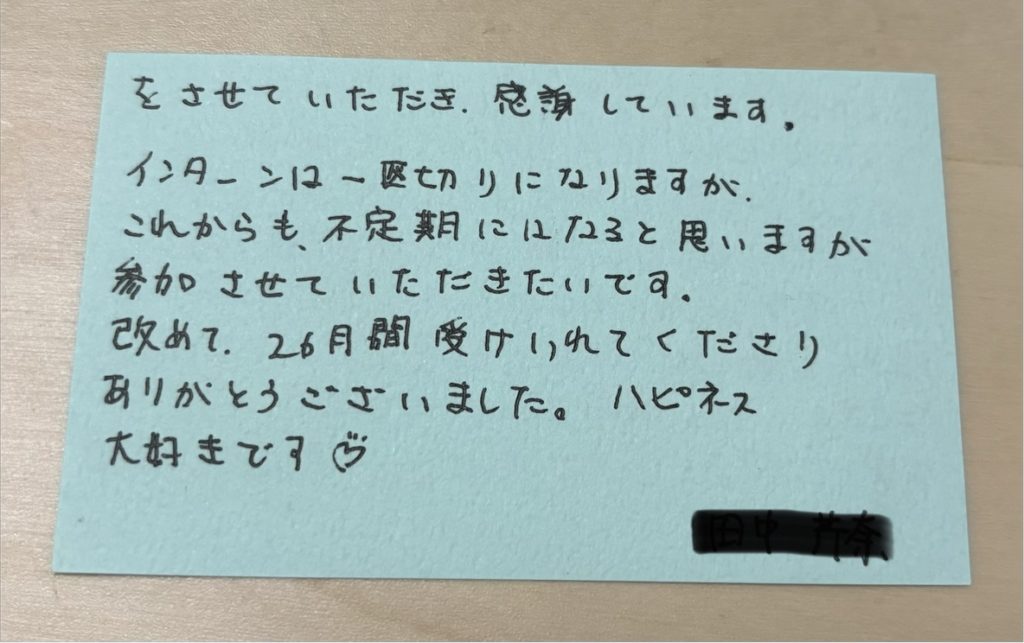 をさせていただき、感謝しています。
インターンは一区切りになりますが、
これからも、不定期にはなると思いますが
参加させていただきたいです。
改めて、2ヶ月間受けいれてくださり
ありがとうございました。ハピネス
大好きです♡